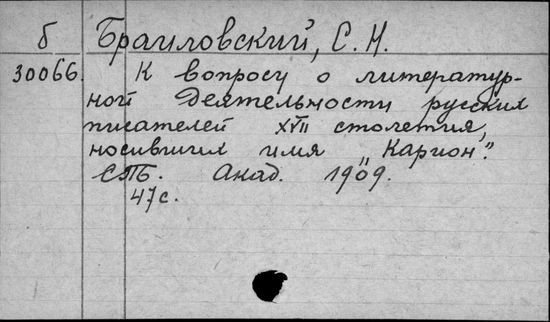 б Браиловский, С. Н.
30066. К вопросу о литератур-
ной деятельности русских
писателей XVII столетия,
носивших имя „Карион".
СПБ. Акад. 1909.
47 с.